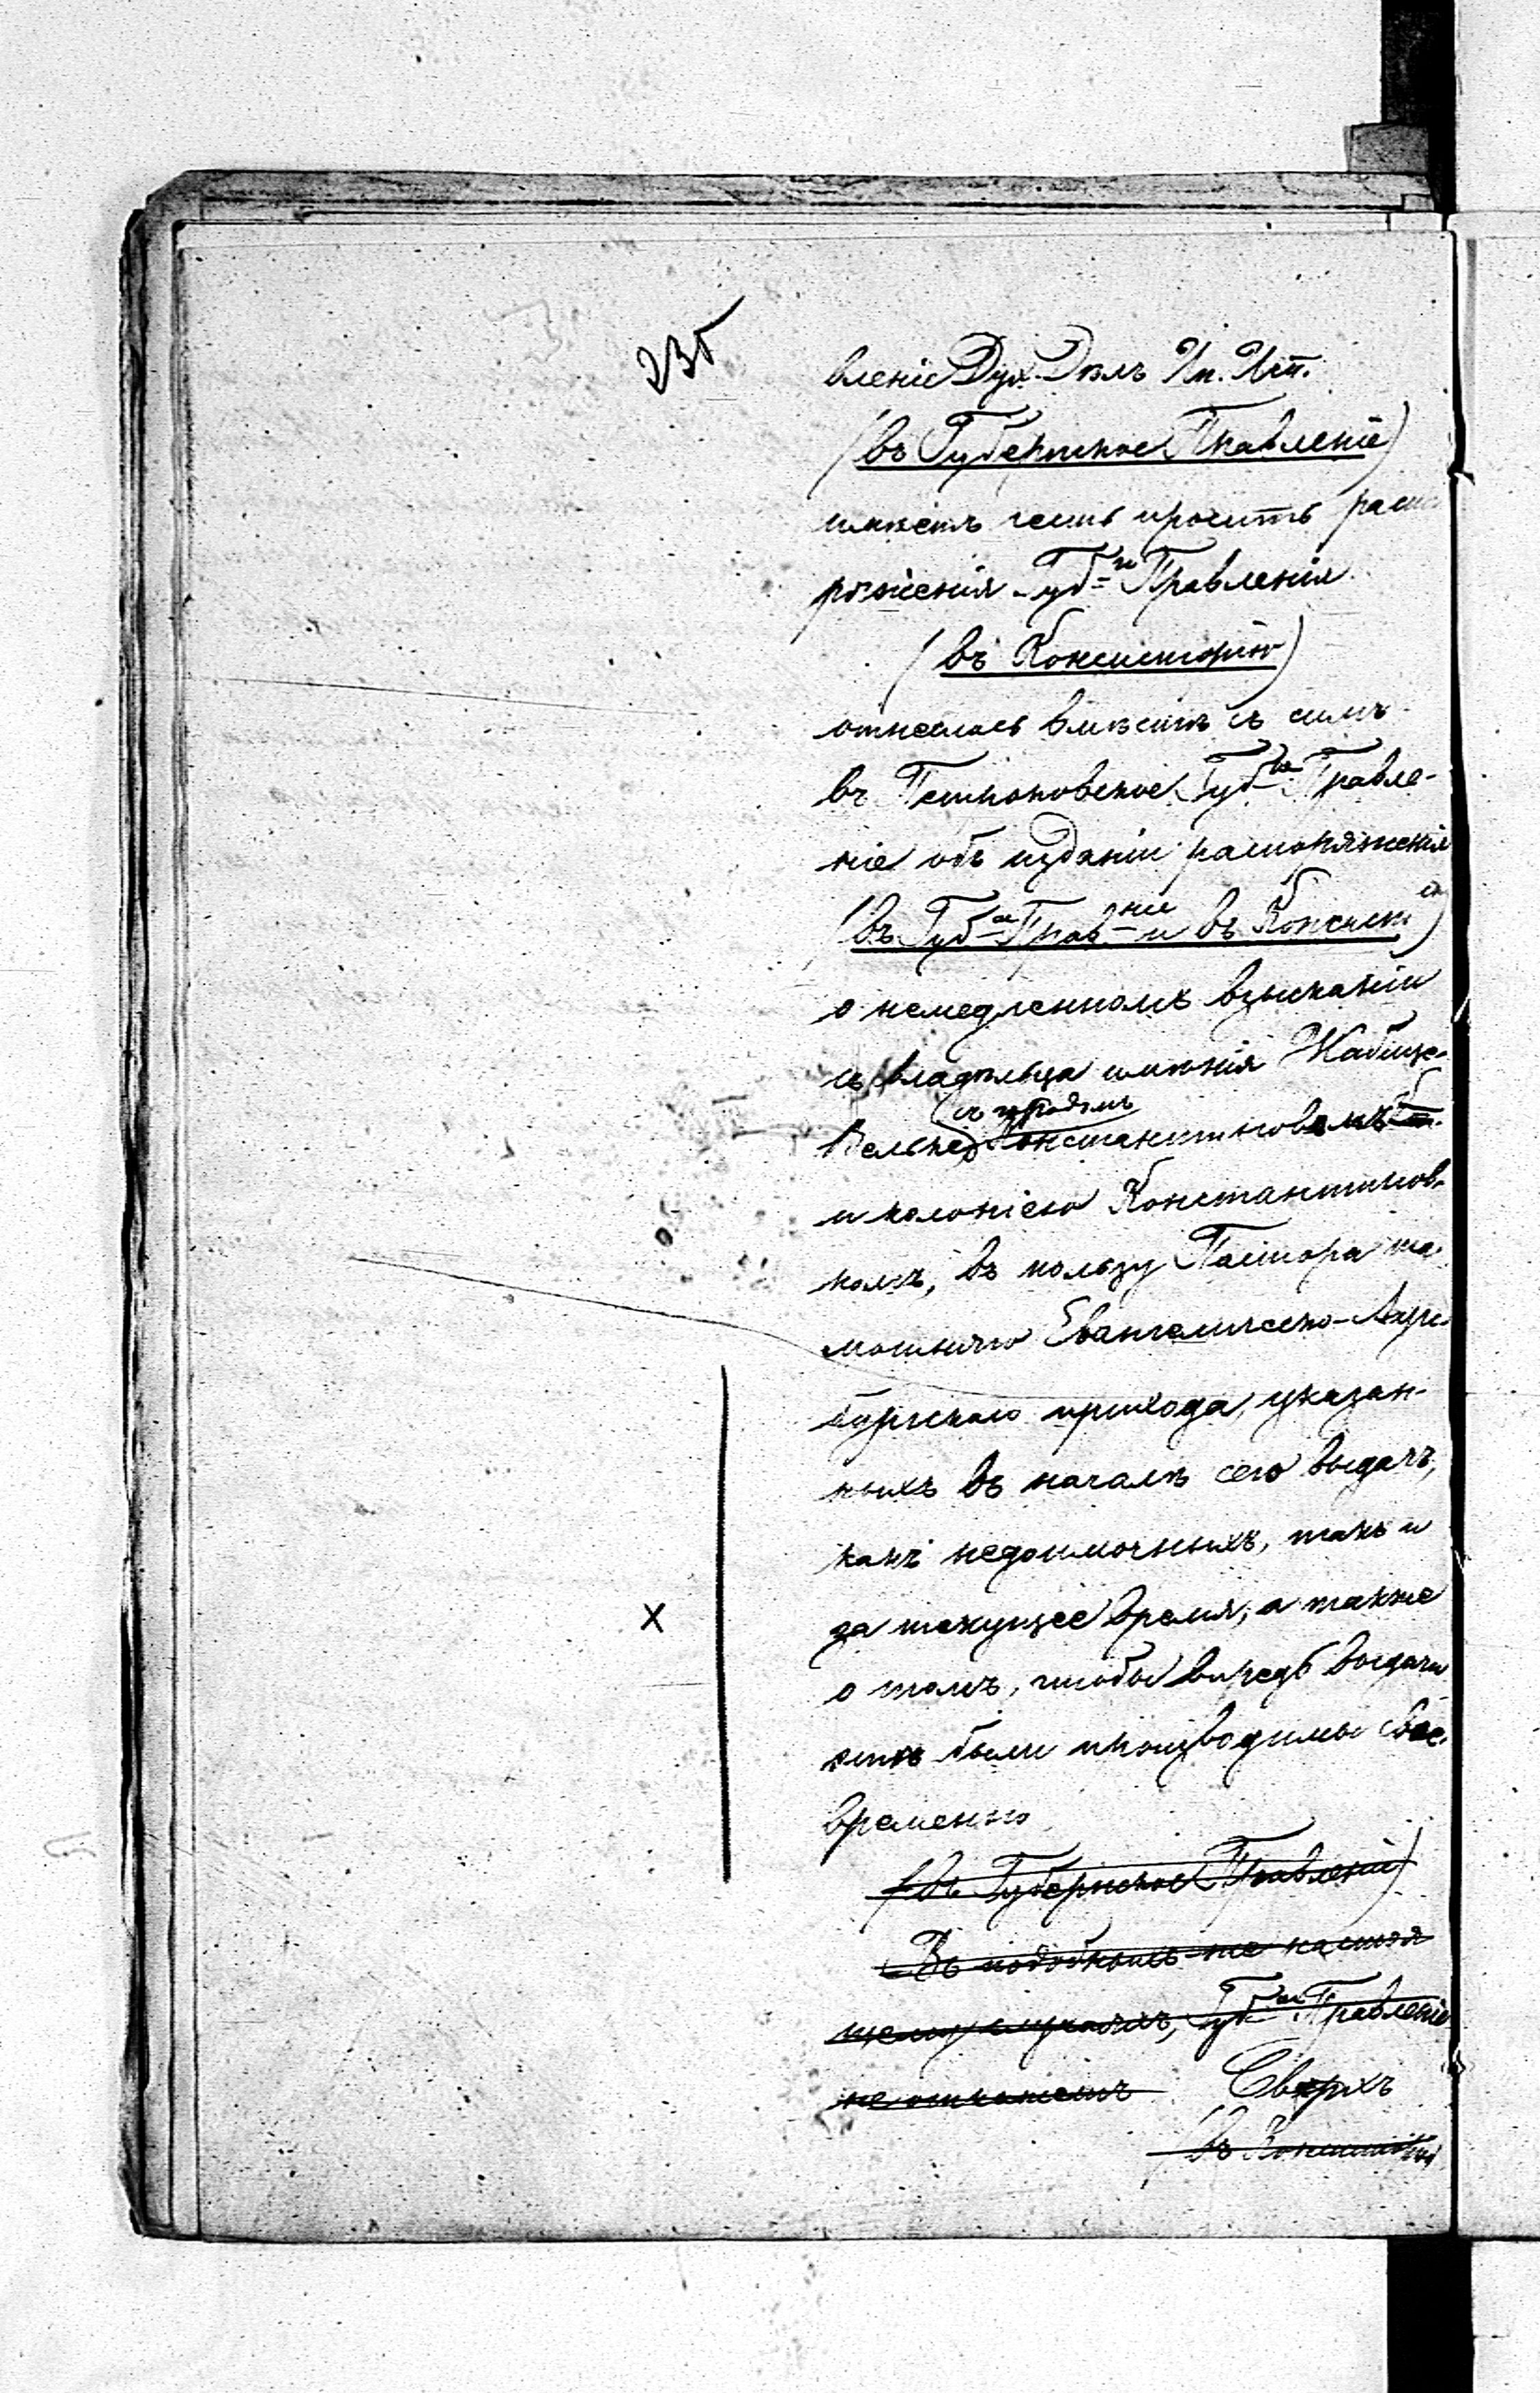 235
вленіе Дух. Дѣлъ Ин. Исп.
(въ Губернское Правленіе)
имѣетъ честь просить распо
ряженія Губ-го Правленія
(въ Консисторію)
отнеслось вмѣстѣ съ симъ
въ Петроковское Губ-ое Правле-
ніе объ изданіи распоряженія
(въ Губ-ое Прав-ніе и въ Консист.)
о немедленномъ взысканіи
съ владѣльца имѣнія
съ городомъ
Константиновомъ
и колоніею Константинов-
комъ, въ пользу Пастора та-
мошняго Евангелическо-Аугс-
бургскаго прихода, указан-
ныхъ въ началѣ сего выдачъ,
какъ недоимочныхъ, такъ и
за текущее время, а также
о томъ, чтобы впредь выдачи
эти были производимы свое-
временно
(въ Губернское Правленіе)
Въ подобномъ же настоя
щему случаяхъ, Губ-ое Правленіе
не откажетъ Сверхъ
въ Консисторію
Х